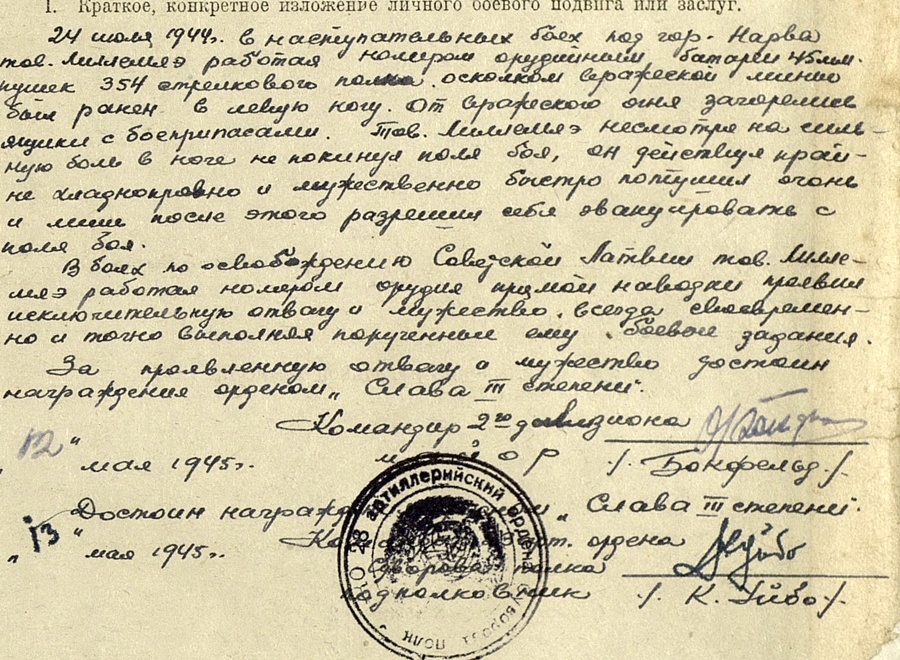 I. Краткое, конкретное изложение личного боевого подвига или заслуг.
24 июля 1944г. в наступательных боях под гор. Нарва
тов. Миллемяэ работая номером орудийным батареи 45 мм.
пушек 354 стрелкового полка осколком вражеской мины
был ранен в левую ногу. От вражеского огня загорелись
ящики с боеприпасами. Тов. Миллемяэ несмотря на силь-
ную боль в ноге не покинул поля боя, он действуя край-
не хладнокровно и мужественно быстро потушил огонь
и лишь после этого разрешил себя эвакуировать с
поля боя.
В боях по освобождению Советской Латвии тов. Милле-
мяэ работая номером орудия прямой наводки проявил
исключительную отвагу и мужество, всегда своевремен-
но и точно выполняя порученные ему боевые задания.
За проявленную отвагу и мужество достоин
награждения орденом „Слава III степени".
Командир 2го дивизиона
„12" мая 1945г. майор /. Бонфельд ./.
Достоин награжд „Слава III степени".
„13" мая 1945г. арт. ордена
Суворова полка
подполковник /. К. Уйбо ./.
артиллерийский ордена
полк